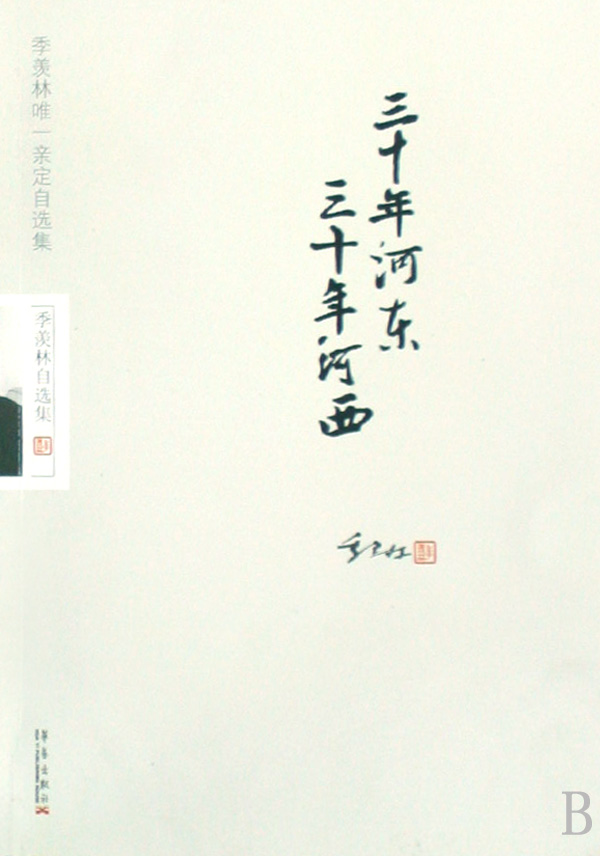 三十年河东
三十年河西
季羡林
季羡林唯一亲定自选集
季羡林自选集
華藝出版社
B